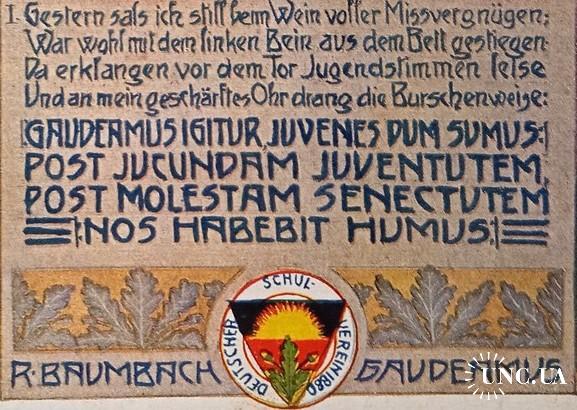 I. Gestern sals ich still beim Wein voller Missvergnügen;
War wohl mit dem linken Bein aus dem Bett gestiegen.
Da erklangen vor dem Tor Jugendstimmen leise
Und an mein geschärftes Ohr drang die Burschenweise:
|:GAUDEAMUS IGITUR, JUVENES DUM SUMUS:|
POST JUCUNDAM JUVENTUTEM,
POST MOLESTAM SENECTUTEM
|:NOS HABEBIT HUMUS:|
DEUTSCHER SCHUL-VEREIN 1880
R. BAUMBACH GAUDEAMUS
UNC.UA